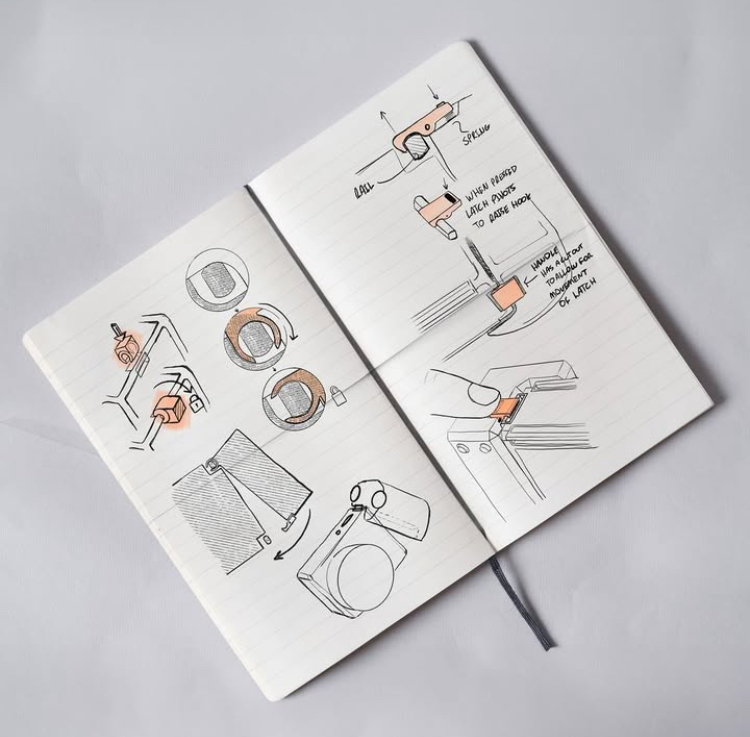 SPRING
RAIL
WHEN PRESSED
LATCH PIVOTS
TO RAISE HOOK
HANDLE
HAS A CUTOUT
TO ALLOW FOR
MOVEMENT
OF LATCH